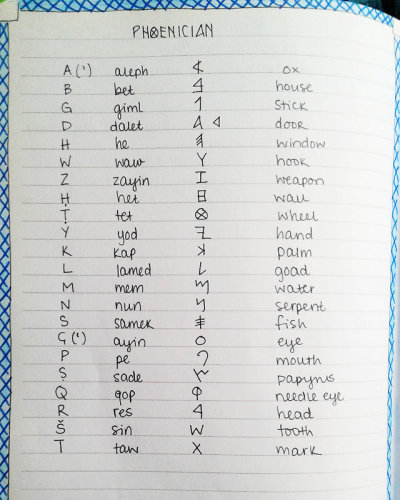 PHOENICIAN
A (') aleph 𐤀 ox
B bet 𐤁 house
G giml 𐤂 stick
D dalet 𐤃 𐤃 door
H he 𐤄 window
W waw 𐤅 hook
Z zayin 𐤆 weapon
Ḥ het 𐤇 wall
Ṭ tet 𐤈 wheel
Y yod 𐤉 hand
K kap 𐤊 palm
L lamed 𐤋 goad
M mem 𐤌 water
N nun 𐤍 serpent
S samek 𐤎 fish
Ç (') ayin 𐤏 eye
P pe 𐤐 mouth
Ṣ sade 𐤑 papyrus
Q qop 𐤒 needle eye
R res 𐤓 head
Š sin 𐤔 tooth
T taw 𐤕 mark